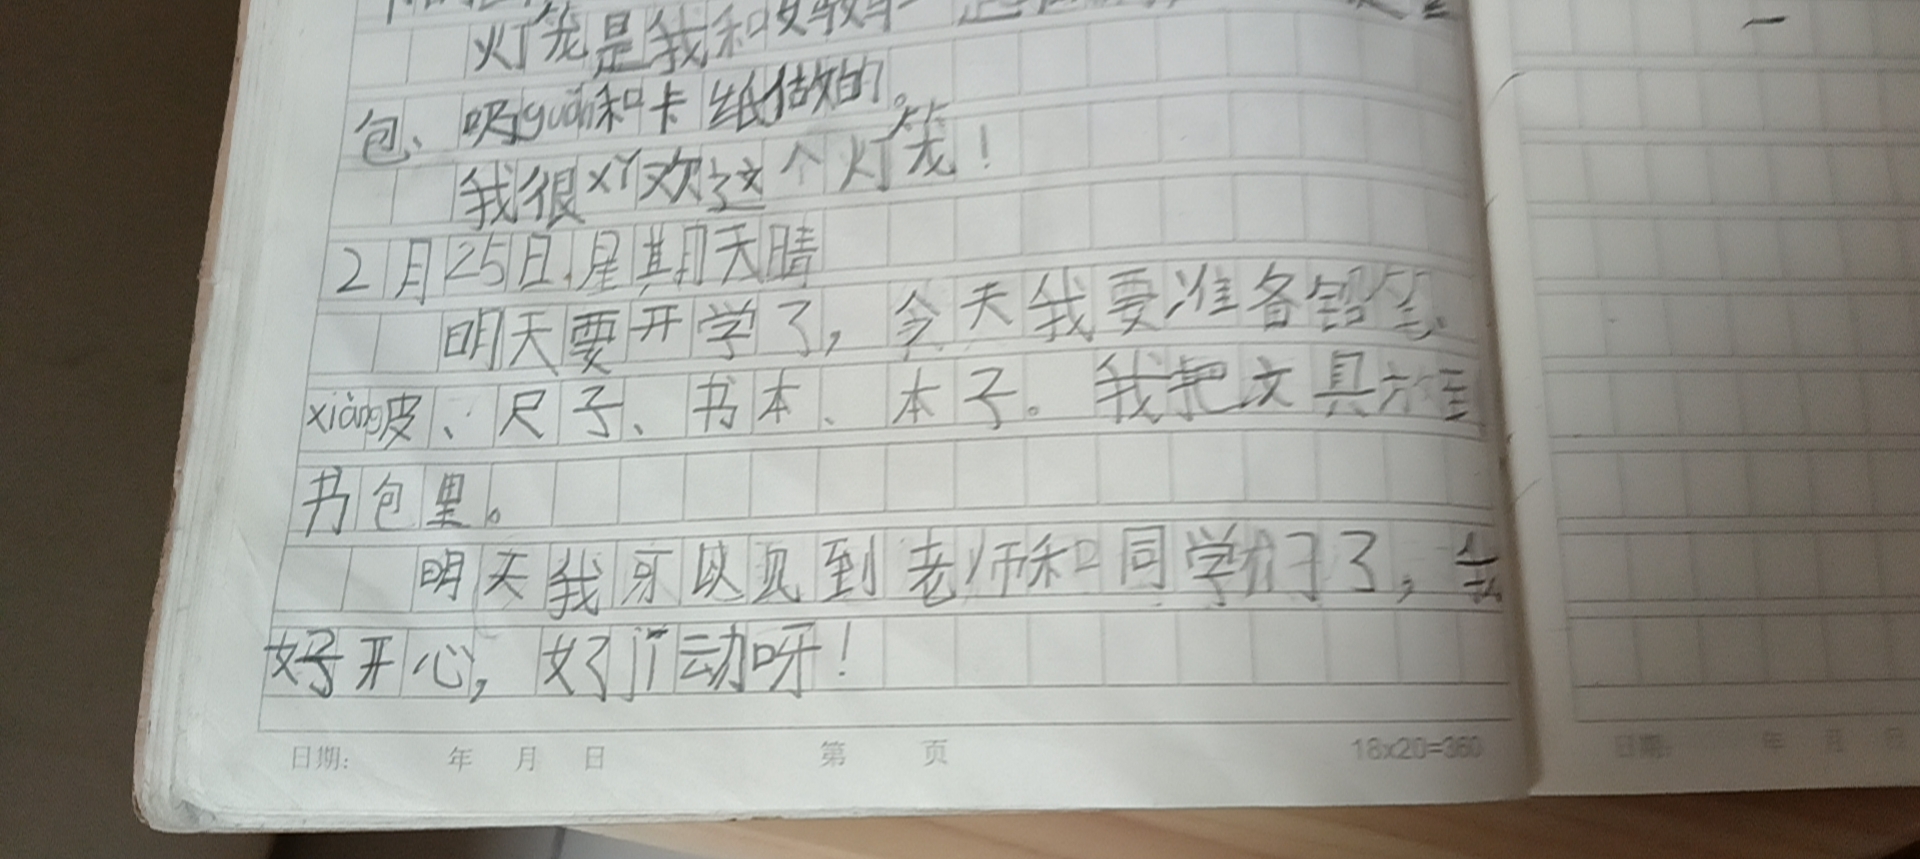 灯笼是我和
包、吸guǎn和卡纸做的。
我很欢这个灯笼！
2月25日 星期天晴
明天要开学了，今天我要准备铅笔、
xiàng皮、尺子、书本、本子。我把文具放在
书包里。
明天我可以见到老师和同学们了，
好开心，好动呀！
日期： 年 月 日 第 页 18x20=360
日期： 年 月 日